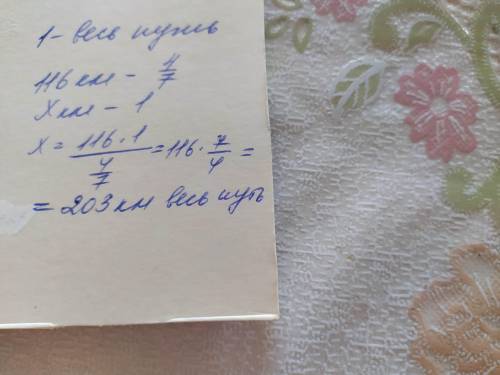 1 - весь путь
116 км - 4/7
X км - 1
x = 116 · 1 / 4/7 = 116 · 7/4 =
= 203 км весь путь